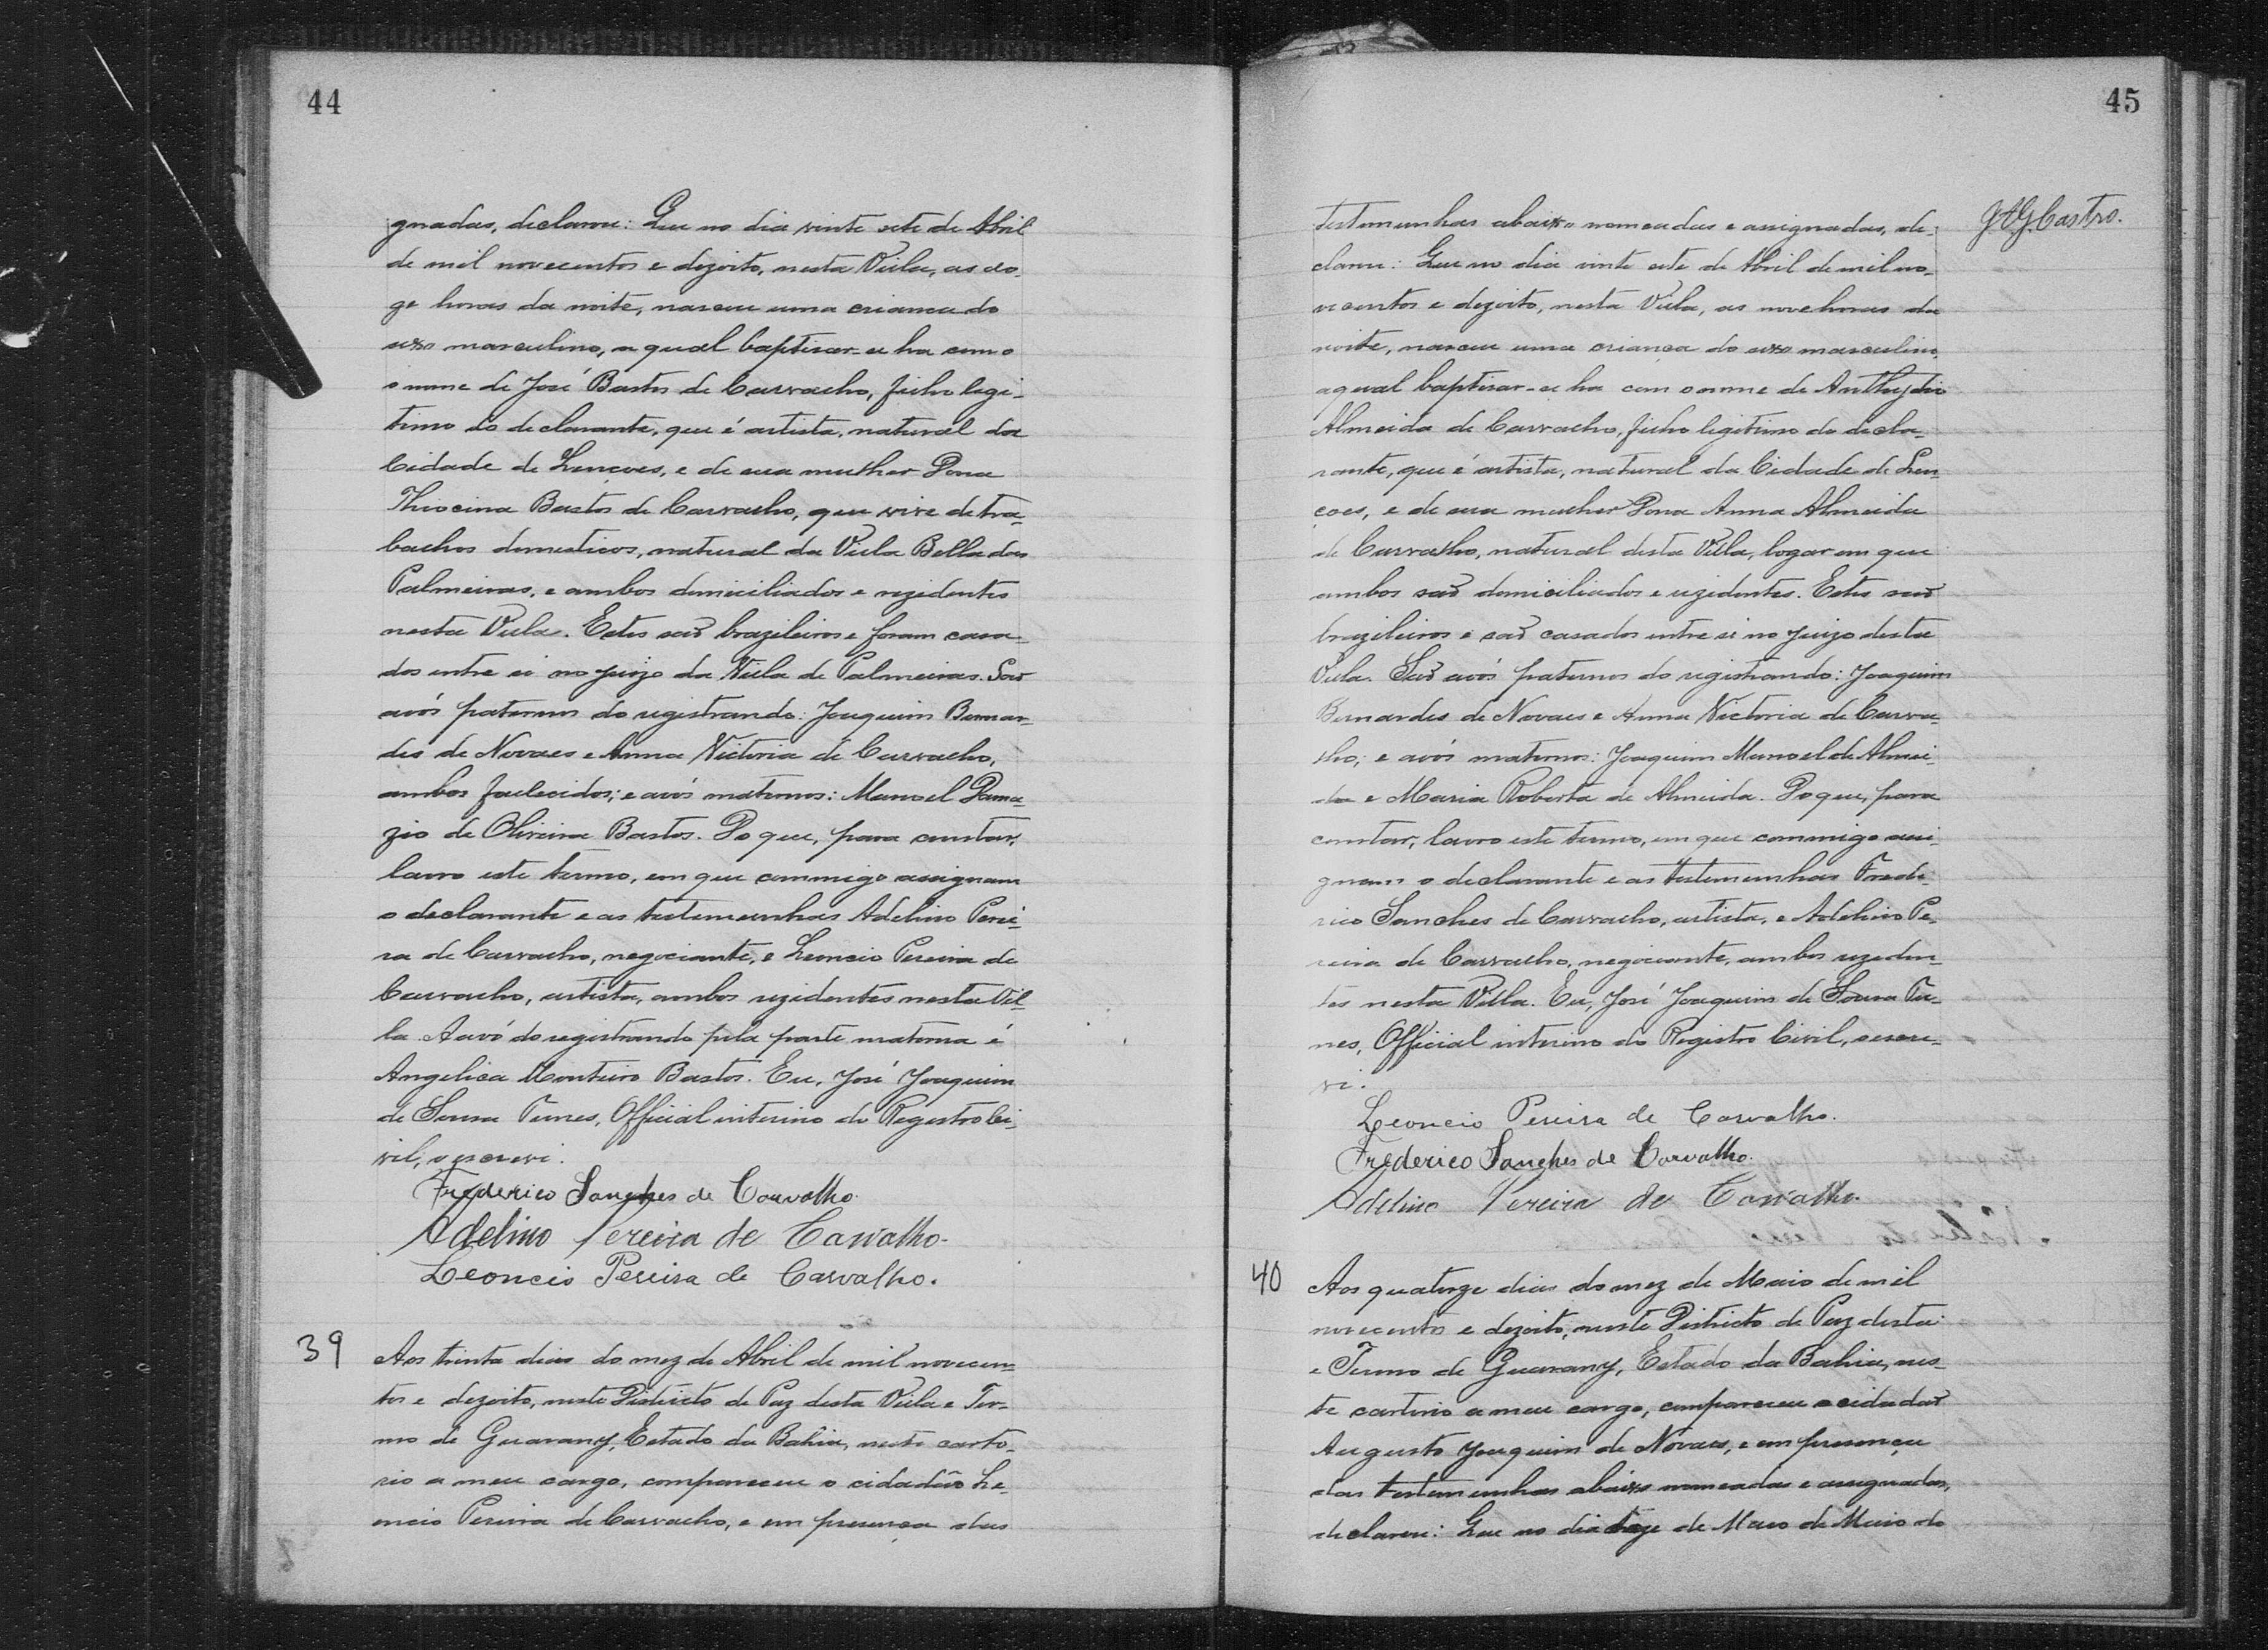 44
gnadas, declarou: Que no dia vinte sete de Abril
de mil novecentos e dezoito, nesta Villa, as do-
ze horas da noite, nasceu uma criança do
sexo masculino, a qual baptisar-se ha com o
o nome de José Bastos de Carvalho, filho legi-
timo do declarante, que é artista, natural da
Cidade de Lençoes, e de sua mulher Dona
Bastos de Carvalho, que vive de tra-
balhos domesticos, natural da Villa Bella das
Palmeiras, e ambos domiciliados e rezidentes
nesta Villa. Estes saõ brazileiros e foram casa-
dos entre si no juizo da Villa de Palmeiras. Saõ
avós paternos do registrando: Joaquim Bernar-
des de Novaes e Anna Victoria de Carvalho,
ambos fallecidos; e avós maternos: Manoel Dama-
zio de Oliveira Bastos. Do que, para constar,
lavro este termo, em que commigo assignam
o declarante e as testemunhas Adelino Perei-
ra de Carvalho, negociante, e Leoncio Pereira de
Carvalho, artista, ambos rezidentes nesta Vil-
la. A avó do registrando pela parte materna é
Angelica Monteiro Bastos. Eu, José Joaquim
de Sousa Funes, Official interino do Registro Ci-
vil, o escrevi.
Frederico Sanches de Carvalho.
Adelino Pereira de Carvalho.
Leoncio Pereira de Carvalho.
39 Aos trinta dias do mez de Abril de mil novecen-
tos e dezoito, neste Districto de Paz desta Villa e Ter-
mo de Guarany, Estado da Bahia, neste carto-
rio a meu cargo, compareceu o cidadão Le-
oncio Pereira de Carvalho, e em presença das
45
J.A.G. Castro.
testemunhas abaixo nomeadas e assignadas, de-
clarou: Que no dia vinte sete de Abril de mil no-
vecentos e dezoito, nesta Villa, as nove horas da
noite, nasceu uma criança do sexo masculino,
a qual baptisar-se ha com o nome de
Almeida de Carvalho, filho legitimo do decla-
rante, que é artista, natural da Cidade de Len-
çoes, e de sua mulher Dona Anna Almeida
de Carvalho, natural desta Villa, logar em que
ambos saõ domiciliados e rezidentes. Estes saõ
brazileiros e saõ casados entre si no juizo desta
Villa. Saõ avós paternos do registrando: Joaquim
Bernardes de Novaes e Anna Victoria de Carva-
lho; e avós maternos: Joaquim Manoel de Almei-
da e Maria Roberta de Almeida. Do que, para
constar, lavro este termo, em que commigo assi-
gnam o declarante e as testemunhas Frede-
rico Sanches de Carvalho, artista, e Adelino Pe-
reira de Carvalho, negociante, ambos reziden-
tes nesta Villa. Eu, José Joaquim de Sousa Fu-
nes, Official interino do Registro Civil, o escre-
vi.
Leoncio Pereira de Carvalho.
Frederico Sanches de Carvalho.
Adelino Pereira de Carvalho.
40 Aos quatorze dias do mez de Maio de mil
novecentos e dezoito, neste Districto de Paz desta
e Termo de Guarany, Estado da Bahia, nes-
te cartorio a meu cargo, compareceu o cidadaõ
Augusto Joaquim de Novaes, e em presença
das testemunhas abaixo nomeadas e assignadas,
declarou: Que no dia treze de Maio de Maio de